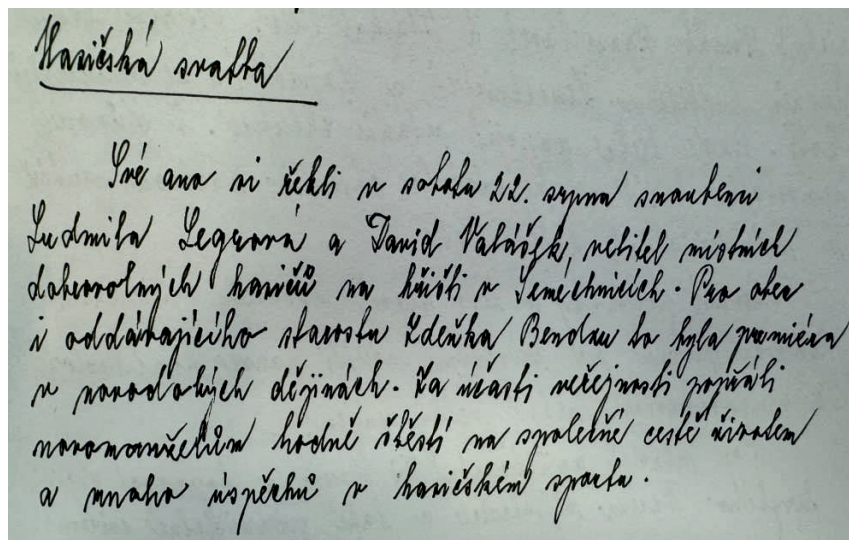 Hasičská svatba
Své ano si řekli v sobotu 22. srpna snoubenci
Ludmila Legnerová a David Valášek, velitel místních
dobrovolných hasičů na hřišti v Semechnicích. Pro obec
i oddávajícího starostu Zdeňka Bendu to byla premiéra
v novodobých dějinách. Za účasti veřejnosti popřáli
novomanželům hodně štěstí na společné cestě životem
a mnoho úspěchů v hasičském sportu.